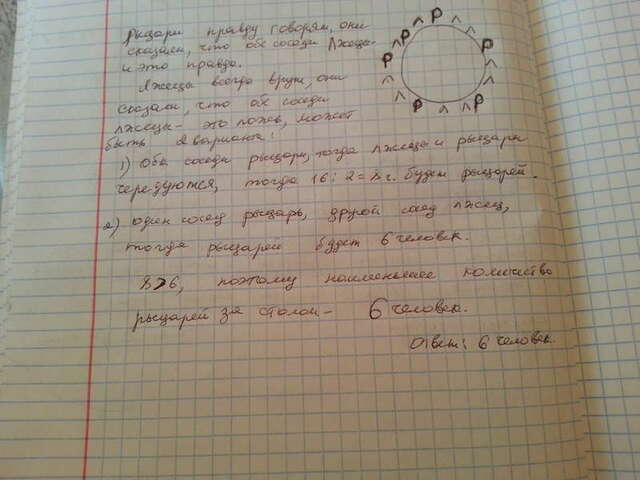 Рыцари правду говорят, они
сказали, что обе соседи Лжецы-
и это правда.
Лжецы всегда врут, они
сказали, что обе соседи
лжецы - это ложь, может
быть 2 варианта:
1) Оба соседи рыцари, тогда лжецы и рыцари
чередуются, тогда 16:2=8ч. будет рыцарей.
2) один сосед рыцарь, другой сосед лжец,
тогда рыцарей будет 6 человек.
8>6, поэтому наименьшее количество
рыцарей за столом - 6 человек.
Ответ: 6 человек.